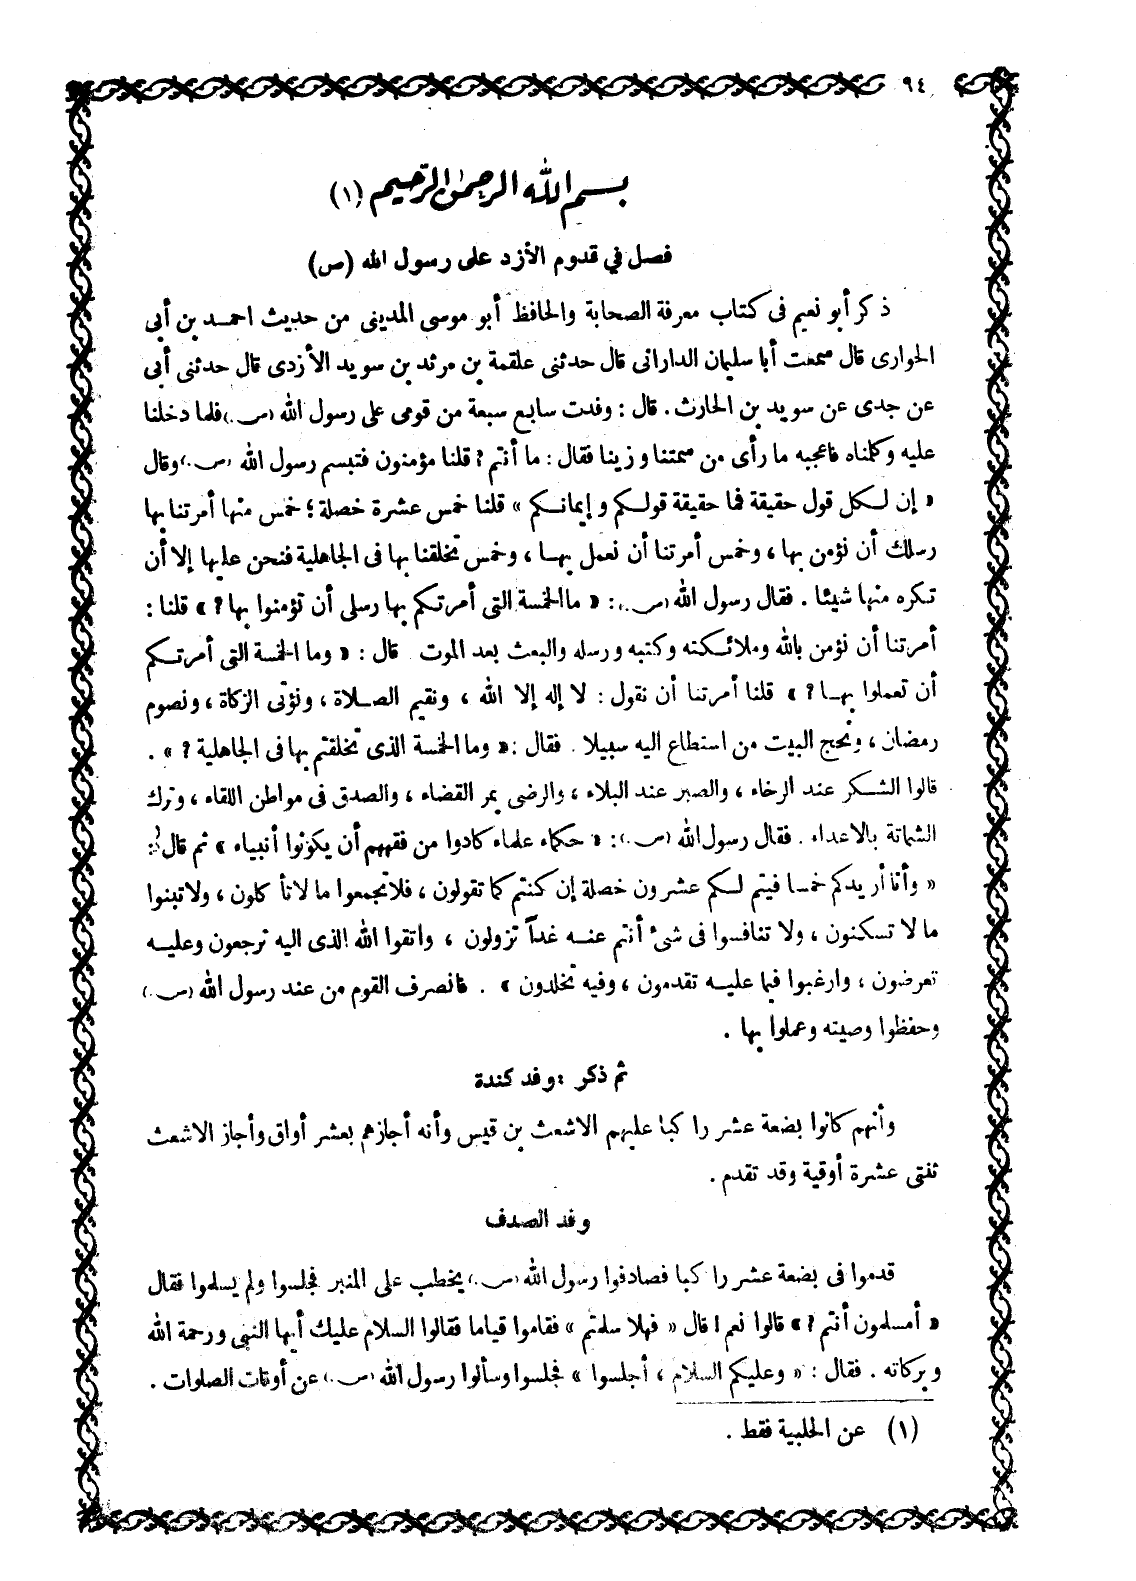 ٩٤
بسم الله الرحمن الرحيم (١)
فصل في قدوم الأزد على رسول الله (ص)
ذكر أبو نعيم فى كتاب معرفة الصحابة والحافظ أبو موسى المدينى من حديث احمد بن أبي
الحوارى قال سمعت أبا سليمان الدارانى قال حدثنى علقمة بن مرثد بن سويد الأزدى قال حدثنى أبى
عن جدى عن سويد بن الحارث . قال : وفدت سابع سبعة من قومى على رسول الله (س.) فلما دخلنا
عليه وكلمناه فاعجبه ما رأى من سمتنا وزينا فقال : ما أنتم ? قلنا مؤمنون فتبسم رسول الله (س.) وقال
« إن لكل قول حقيقة فما حقيقة قولكم وإيمانكم » قلنا خمس عشرة خصلة ؛ خمس منها أمرتنا بها
رسلك أن نؤمن بها ، وخمس أمرتنا أن نعمل بها ، وخمس تخلقنا بها فى الجاهلية فنحن عليها إلا أن
تكره منها شيئا . فقال رسول الله (س.) : « ما الخمسة التى أمرتكم بها رسلى أن تؤمنوا بها ? » قلنا :
أمرتنا أن نؤمن بالله وملائكته وكتبه ورسله والبعث بعد الموت قال : « وما الخمسة التى أمرتكم
أن تعملوا بها ? » قلنا أمرتنا أن نقول : لا إله إلا الله ، ونقيم الصلاة ، ونؤتى الزكاة ، ونصوم
رمضان ، ونحج البيت من استطاع اليه سبيلا . فقال : « وما الخمسة الذى تخلقتم بها فى الجاهلية ? » .
قالوا الشكر عند الرخاء ، والصبر عند البلاء ، والرضى بمر القضاء ، والصدق فى مواطن اللقاء ، وترك
الشماتة بالاعداء . فقال رسول الله (س.) : « حكماء علماء كادوا من فقههم أن يكونوا أنبياء » ثم قال :
« وأنا أزيدكم خمسا فيتم لكم عشرون خصلة إن كنتم كما تقولون ، فلا تجمعوا ما لا تأكلون ، ولا تبنوا
ما لا تسكنون ، ولا تنافسوا فى شىء أنتم عنه غداً تزولون ، واتقوا الله الذى اليه ترجعون وعليه
تعرضون ، وارغبوا فيما عليه تقدمون ، وفيه تخلدون » . فانصرف القوم من عند رسول الله (س.)
وحفظوا وصيته وعملوا بها .
ثم ذكر : وفد كندة
وأنهم كانوا بضعة عشر راكبا عليهم الاشعث بن قيس وأنه أجازهم بعشر أواق وأجاز الاشعث
ثنتى عشرة أوقية وقد تقدم .
وفد الصدف
قدموا فى بضعة عشر راكبا فصادفوا رسول الله (س.) يخطب على المنبر فجلسوا ولم يسلموا فقال
« أمسلمون أنتم ? » قالوا نعم ! قال « فهلا سلمتم » فقاموا قياما فقالوا السلام عليك أيها النبى ورحمة الله
وبركاته . فقال : « وعليكم السلام ، أجلسوا » فجلسوا وسألوا رسول الله (س.) عن أوقات الصلوات .
(١) عن الحلبية فقط .